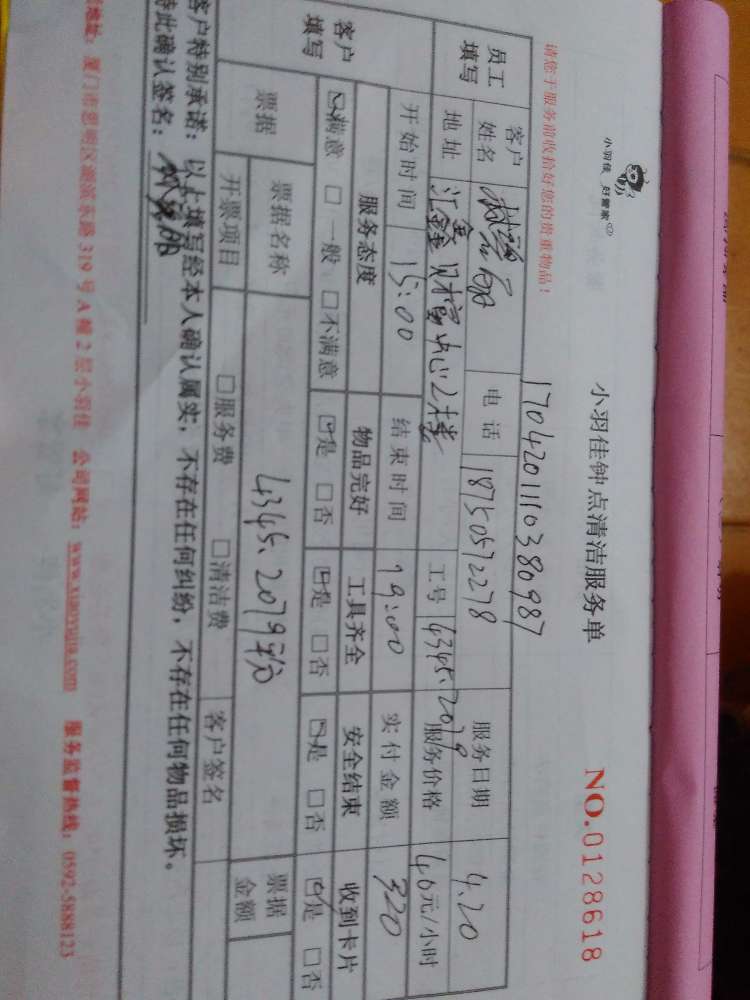 小羽佳 好管家
小羽佳钟点清洁服务单
NO.0128618
请您于服务前收拾好您的贵重物品!
1704201110380987
员工填写
客户姓名
电话 18750572278
服务日期 4.20
地址 汇鑫财富中心2楼
工号 4345.2079
服务价格 40元/小时
开始时间 15:00
结束时间 19:00
实付金额 320
客户填写
服务态度 物品完好 工具齐全 安全结束 收到卡片
☑满意 □一般 □不满意 ☑是 □否 ☑是 □否 ☑是 □否 ☑是 □否
票据
票据名称 4345.2079
票据金额
开票项目 □服务费 □清洁费 客户签名
客户特别承诺:以上填写经本人确认属实,不存在任何纠纷,不存在任何物品损坏。
特此确认签名:
厦门市思明区湖滨东路319号A幢2层小羽佳 公司网站:www.xiaoyujia.com 服务监督热线:0592-5888123